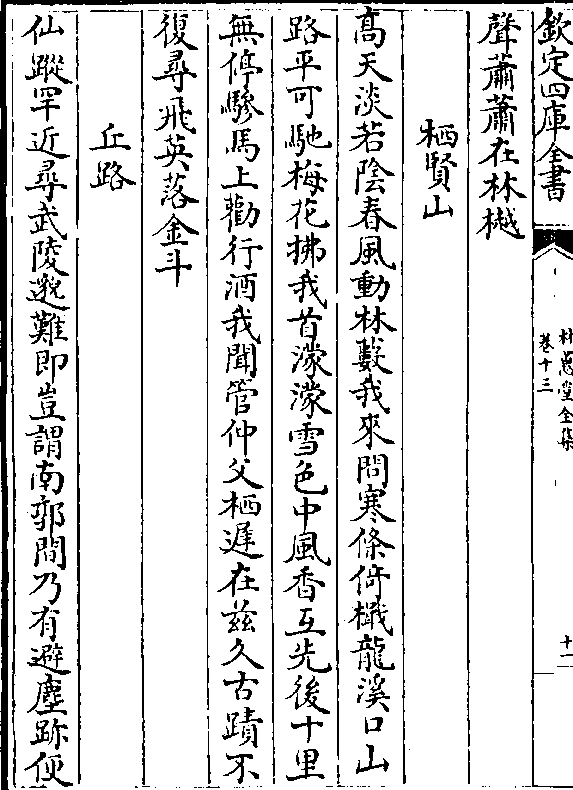 欽定四庫全書
林蕙堂全集
卷十三
十二
聲蕭蕭在林樾
栖賢山
高天淡若陰春風動林藪我來問寒條倚檥龍溪口山
路平可馳梅花拂我首濛濛雪色中風香互先後十里
無停驂馬上勸行酒我聞管仲父栖遲在兹久古蹟不
復尋飛英落金斗
丘路
仙蹤罕近尋武陵邈難即豈謂南郭間乃有避塵跡便